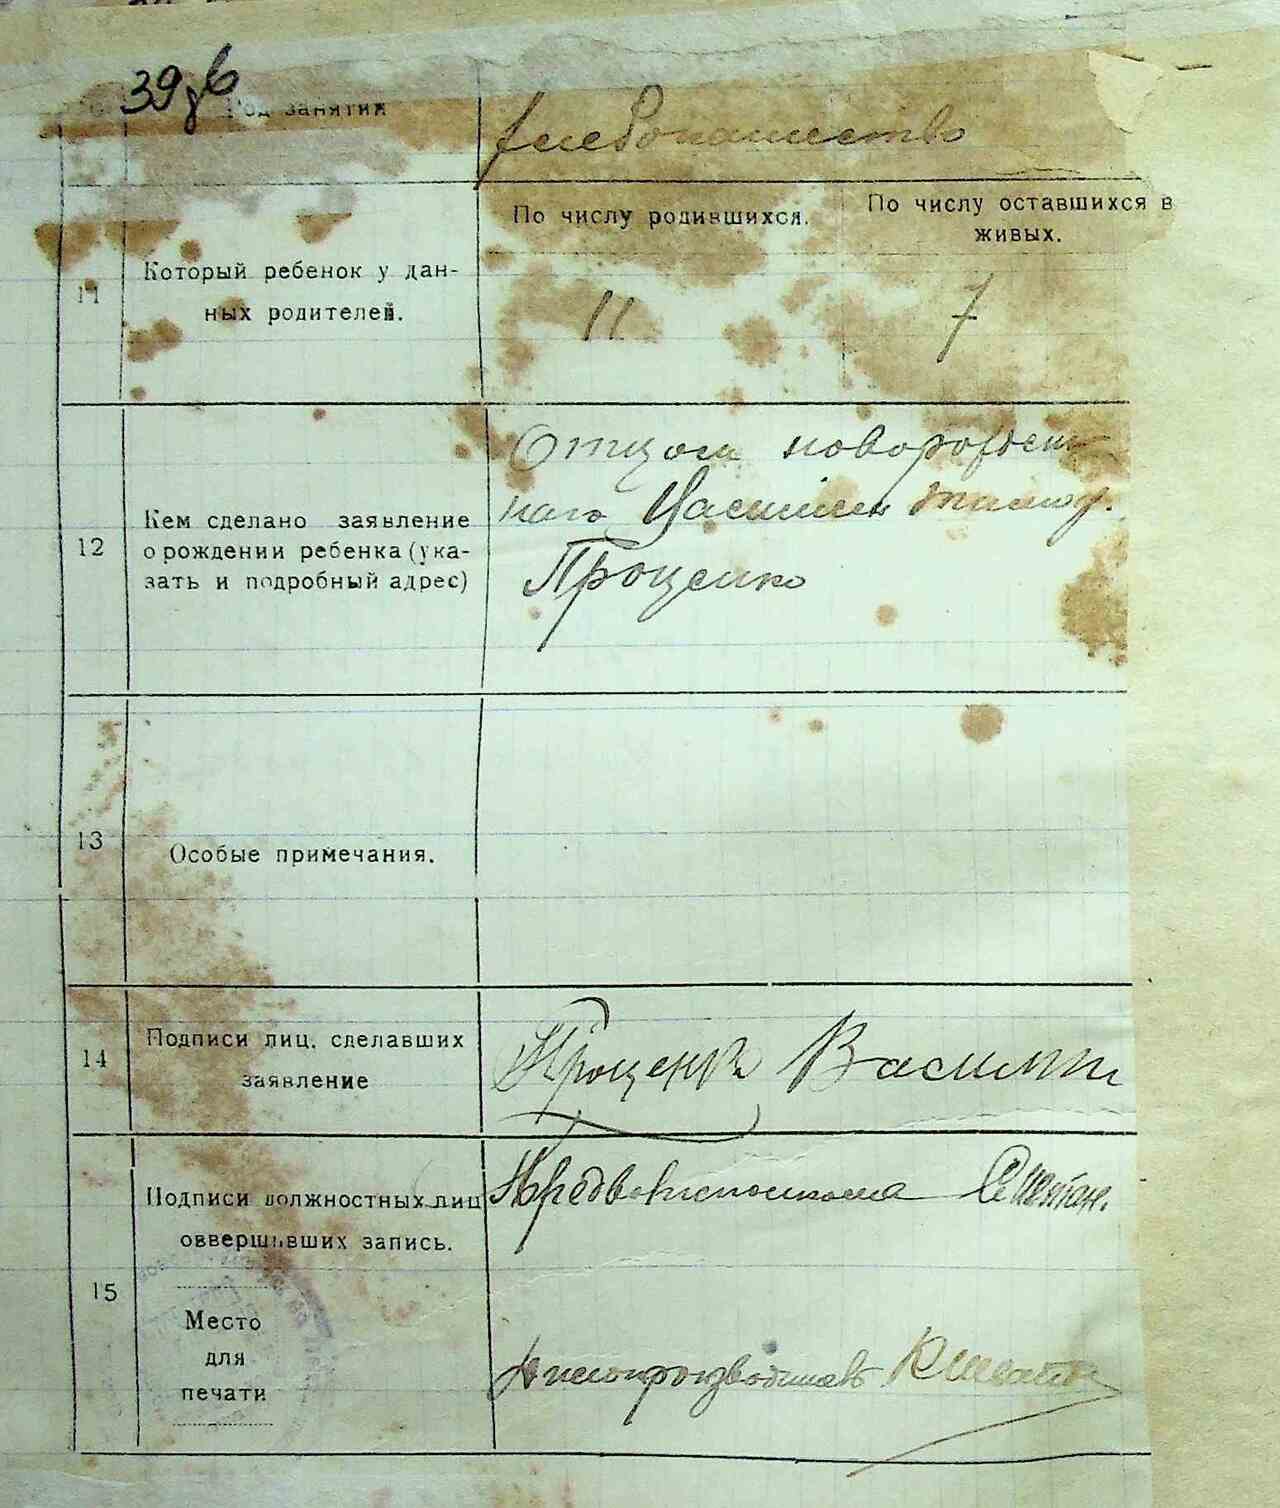 39зв
Род занятий
хлебопашество
По числу родившихся.
По числу оставшихся в
живых.
11
Который ребенок у дан-
ных родителей.
11
7
12
Кем сделано заявление
о рождении ребенка (ука-
зать и подробный адрес)
Отцом новорожден
ного Василием Тимоф.
Проценко
13
Особые примечания.
14
Подписи лиц, сделавших
заявление
Проценко Василий
15
Подписи должностных лиц
овершивших запись.
Место
для
печати
Предволисполкома
Делопроизводитель